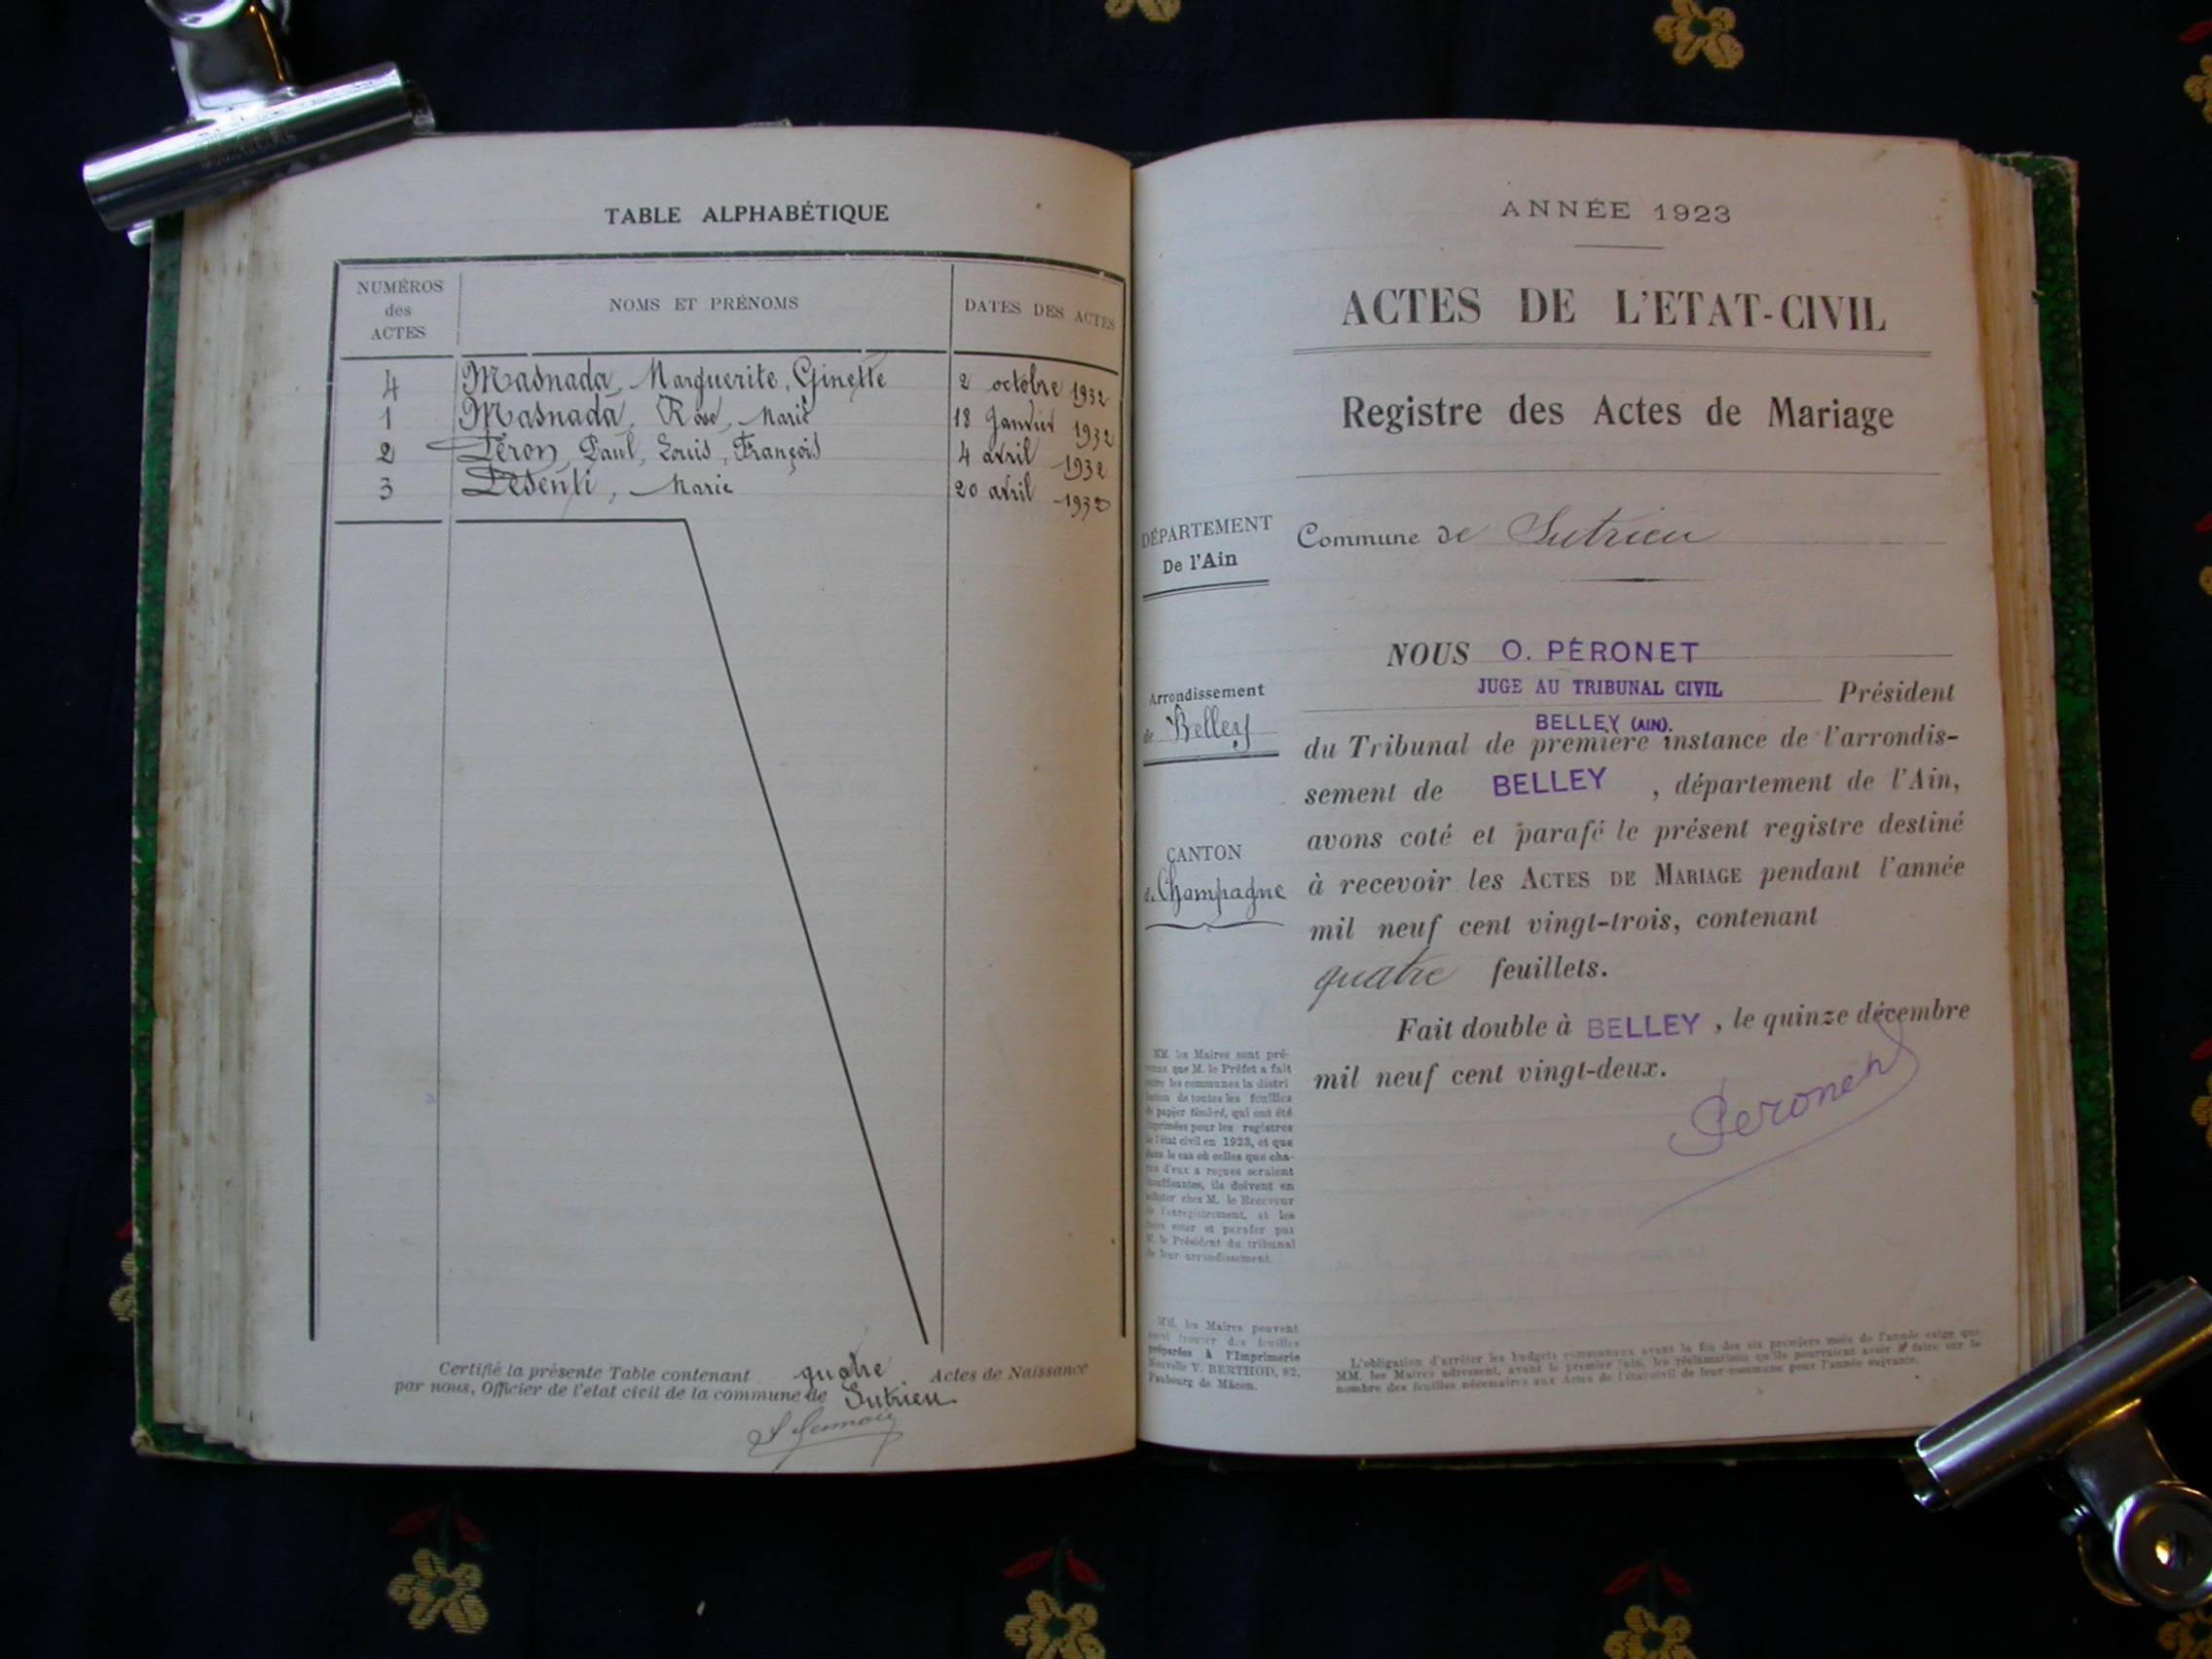 TABLE ALPHABÉTIQUE
NUMÉROS des ACTES
NOMS ET PRÉNOMS
DATES DES ACTES
4 Masnada, Marguerite, Ginette 2 octobre 1932
1 Masnada, Rose, Marie 18 Janvier 1932
2 Péron, Paul, Louis, François 4 avril 1932
3 Pesenti, Marie 20 avril 1932
Certifié la présente Table contenant quatre Actes de Naissance
par nous, Officier de l'etat civil de la commune de Sutrieu
ANNÉE 1923
ACTES DE L'ETAT-CIVIL
Registre des Actes de Mariage
DÉPARTEMENT
De l'Ain
Commune de Sutrieu
Arrondissement
de Belley
CANTON
de Champagne
NOUS O. PÉRONET
JUGE AU TRIBUNAL CIVIL Président
BELLEY (AIN).
du Tribunal de première instance de l'arrondis-
sement de BELLEY, département de l'Ain,
avons coté et parafé le présent registre destiné
à recevoir les ACTES DE MARIAGE pendant l'année
mil neuf cent vingt-trois, contenant
quatre feuillets.
Fait double à BELLEY, le quinze décembre
mil neuf cent vingt-deux.
Peronet
MM. les Maires sont pré-
venus que M. le Préfet a fait
entre les communes la distri
bution de toutes les feuilles
de papier timbré, qui ont été
imprimées pour les registres
de l'état civil en 1923, et que
dans le cas où celles que cha-
cun d'eux a reçues seraient
insuffisantes, ils doivent en
acheter chez M. le Receveur
de l'enregistrement, et les
faire coter et parafer par
M. le Président du tribunal
de leur arrondissement.
MM. les Maires peuvent
aussi trouver des feuilles
préparées à l'Imprimerie
Nouvelle V. BERTHOD, 82,
Faubourg de Mâcon.
L'obligation d'arrêter les budgets communaux avant la fin des six premiers mois de l'année exige que
MM. les Maires adressent, avant le premier juin, les réclamations qu'ils pourraient avoir à faire sur le
nombre des feuilles nécessaires aux Actes de l'état civil de leur commune pour l'année suivante.